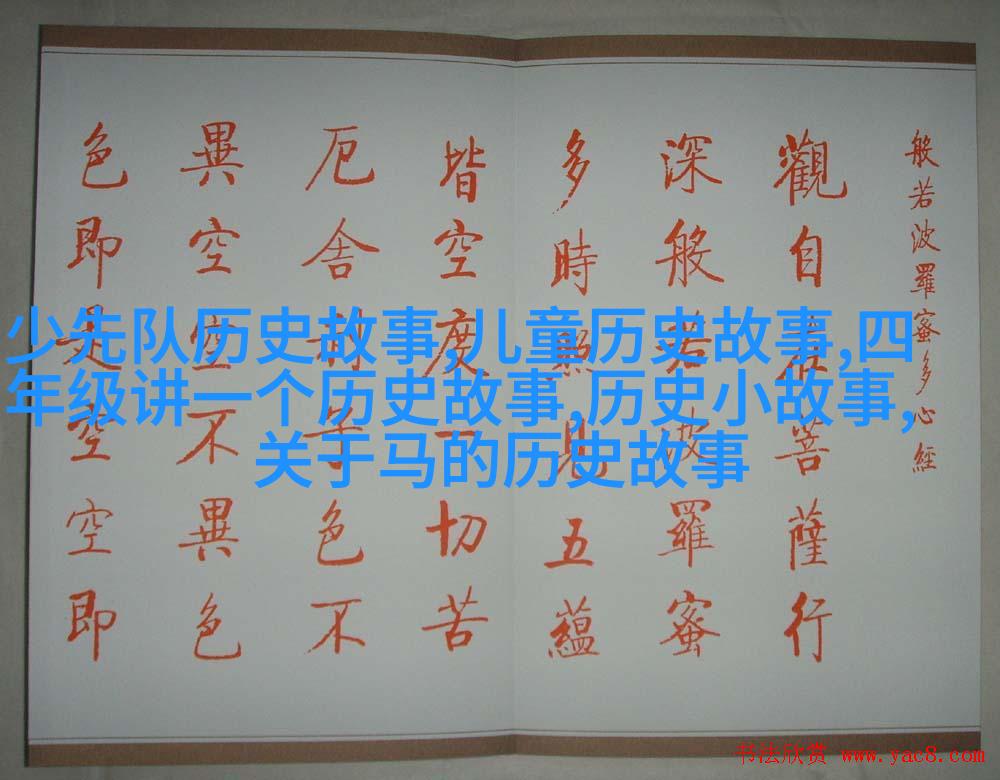 般若波羅蜜多心經
觀自在菩薩行
深般若波羅蜜
多時照見五蘊
皆空度一切苦
厄舍利子色不
異空空不異色
色即是空空即
少先队历史故事,儿童历史故事,四
年级讲一个历史故事,历史小故事,
关于马的历史故事
书法欣赏 www.yac8.com